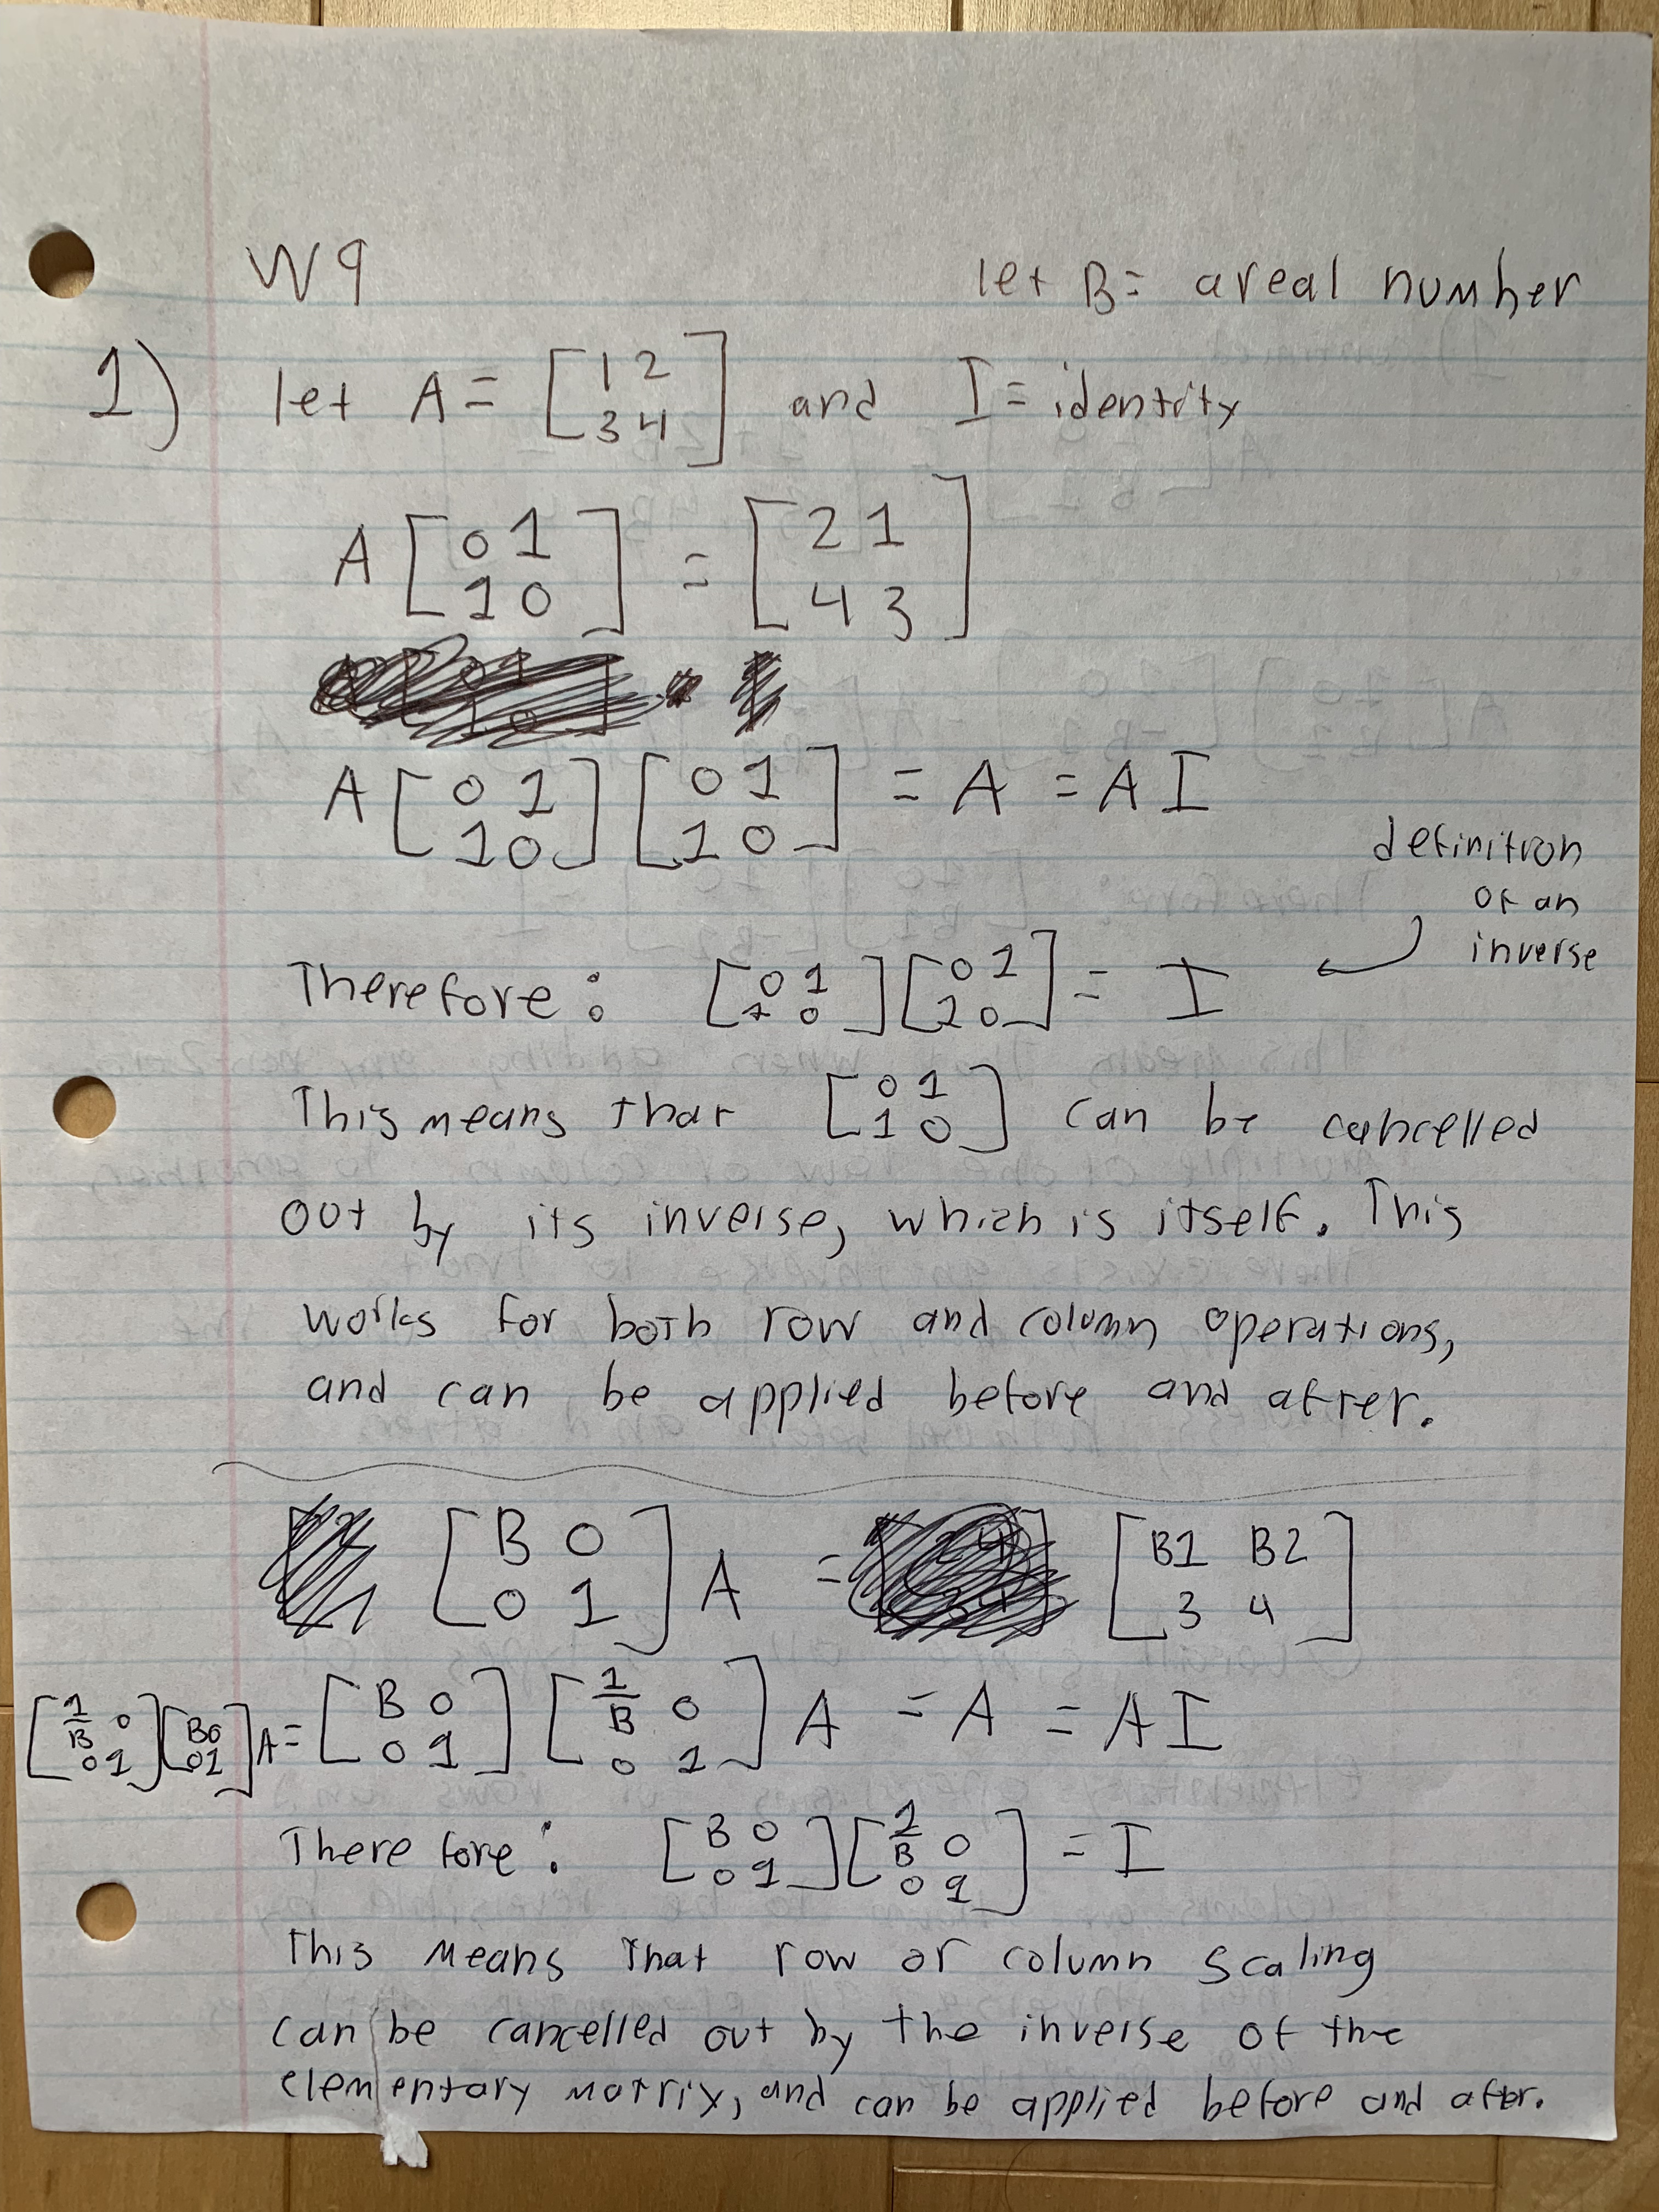 W9
let B= a real number
1) let A = [1 2
3 4] and I = identity
A [0 1
1 0] = [2 1
4 3]
A [0 1
1 0] [0 1
1 0] = A = A I
definition
of an
inverse
Therefore: [0 1
1 0] [0 1
1 0] = I
This means that [0 1
1 0] can be cancelled
out by its inverse, which is itself. This
works for both row and column operations,
and can be applied before and after.
[B 0
0 1] A = [B1 B2
3 4]
[1/B 0
0 1] [B 0
0 1] A = [B 0
0 1] [1/B 0
0 1] A = A = A I
Therefore: [B 0
0 1] [1/B 0
0 1] = I
This means that row or column scaling
can be cancelled out by the inverse of the
elementary matrix, and can be applied before and after.